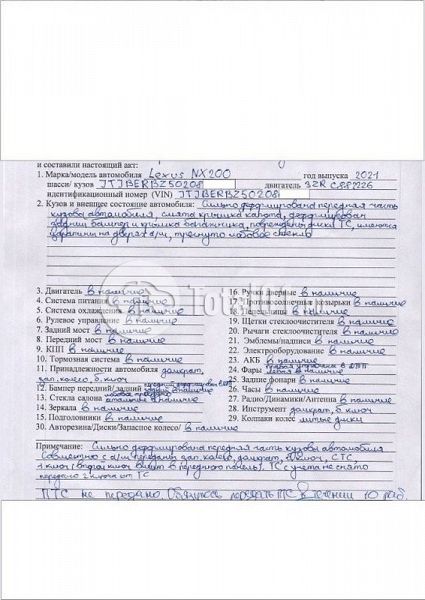 и составили настоящий акт:
1. Марка/модель автомобиля Lexus NX200 год выпуска 2021
шасси/ кузов JTJBERBZ50208 двигатель 3ZR
идентификационный номер (VIN) JTJBERBZ50208
2. Кузов и внешнее состояние автомобиля: Сильно деформирована передняя часть
кузова автомобиля, смята крышка капота, деформирован
задний бампер и крышка багажника, повреждены диски ТС, имеются
царапины на дверях а/м, треснуто лобовое стекло
3. Двигатель в наличие
4. Система питания в наличие
5. Система охлаж. в наличие
6. Рулевое управление в наличие
7. Задний мост в наличие
8. Передний мост в наличие
9. КПП в наличие
10. Тормозная система в наличие
11. Принадлежности автомобиля домкрат,
зап.колесо, б.ключ
12. Бампер передний/ задний
13. Стекла салона в наличие
14. Зеркала в наличие
15. Подголовники в наличие
30. Авторезина/Диски/Запасное колесо/ в наличие
16. Ручки дверей в наличие
17. Противосолнечные козырьки в наличие
18. в наличие
19. Щетки стеклоочистителя в наличие
20. Рычаги стеклоочистителя в наличие
21. Эмблемы/надписи в наличие
22. Электрооборудование в наличие
23. АКБ в наличие
24. Фары левая в наличие
25. Задние фонари в наличие
26. Часы в наличие
27. Радио/Динамики/Антенна в наличие
28. Инструмент домкрат, б.ключ
29. Колпаки колес литые диски
Примечание: Сильно деформирована передняя часть кузова автомобиля
Совместно с а/м переданы зап.колесо, домкрат, б.ключ, СТС,
1 ключ (второй ключ в передней панели). ТС с учета не снято
передано 2 ключа от ТС
ПТС не передано. Обязуюсь передать ПТС в течении 10 раб.
TotalData